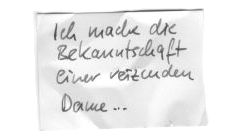 Ich mache die
Bekanntschaft
einer reizenden
Dame...